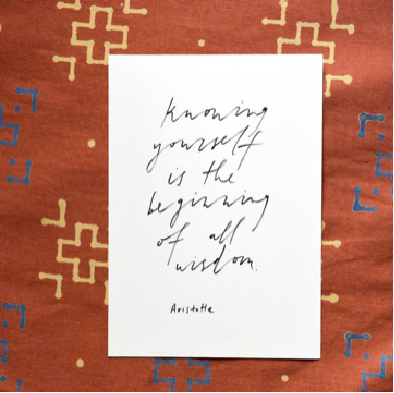 Knowing
yourself
is the
beginning
of all
wisdom.
Aristotle